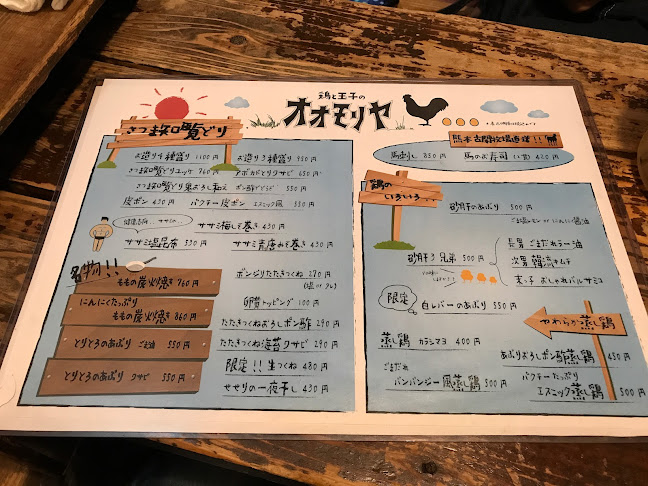 鶏と玉子の
オオモリヤ
さつま知覧どり
お造り4種盛り 1100円
お造り3種盛り 950円
さつま知覧どりユッケ 760円
アボがとりワサビ 650円
さつま知覧どり
ポン酢 550円
皮ポン 430円
パクチー皮ポン エスニック風 550円
ササミ梅しそ巻き 430円
ササミ塩昆布 530円
ササミ青唐みそ巻き 430円
名物!!
ももの炭火焼き 760円
にんにくたっぷり
ももの炭火焼き 860円
とりとろのあぶり ごま油 550円
とりとろのあぶり ワサビ 550円
ボンジリたたきつくね 270円
(塩 or タレ)
卵黄トッピング 100円
たたきつくねおろしポン酢 290円
たたきつくね海苔ワサビ 290円
限定!! 生つくね 480円
せせりの一夜干し 430円
熊本古閑牧場直送!!
馬刺し 850円
馬のお寿司(2貫) 420円
鶏の
いろいろ...
砂肝のあぶり 500円
砂肝3兄弟 500円
長男 ごまだれラー油
次男 韓流キムチ
末っ子 おしゃれバルサミコ
限定
白レバーのあぶり 550円
やわらか蒸し鶏
蒸し鶏 カラシマヨ 400円
あぶりおろしポン酢蒸し鶏 450円
ごまだれ
バンバンジー風蒸し鶏 500円
パクチーたっぷり
エスニック蒸し鶏 500円